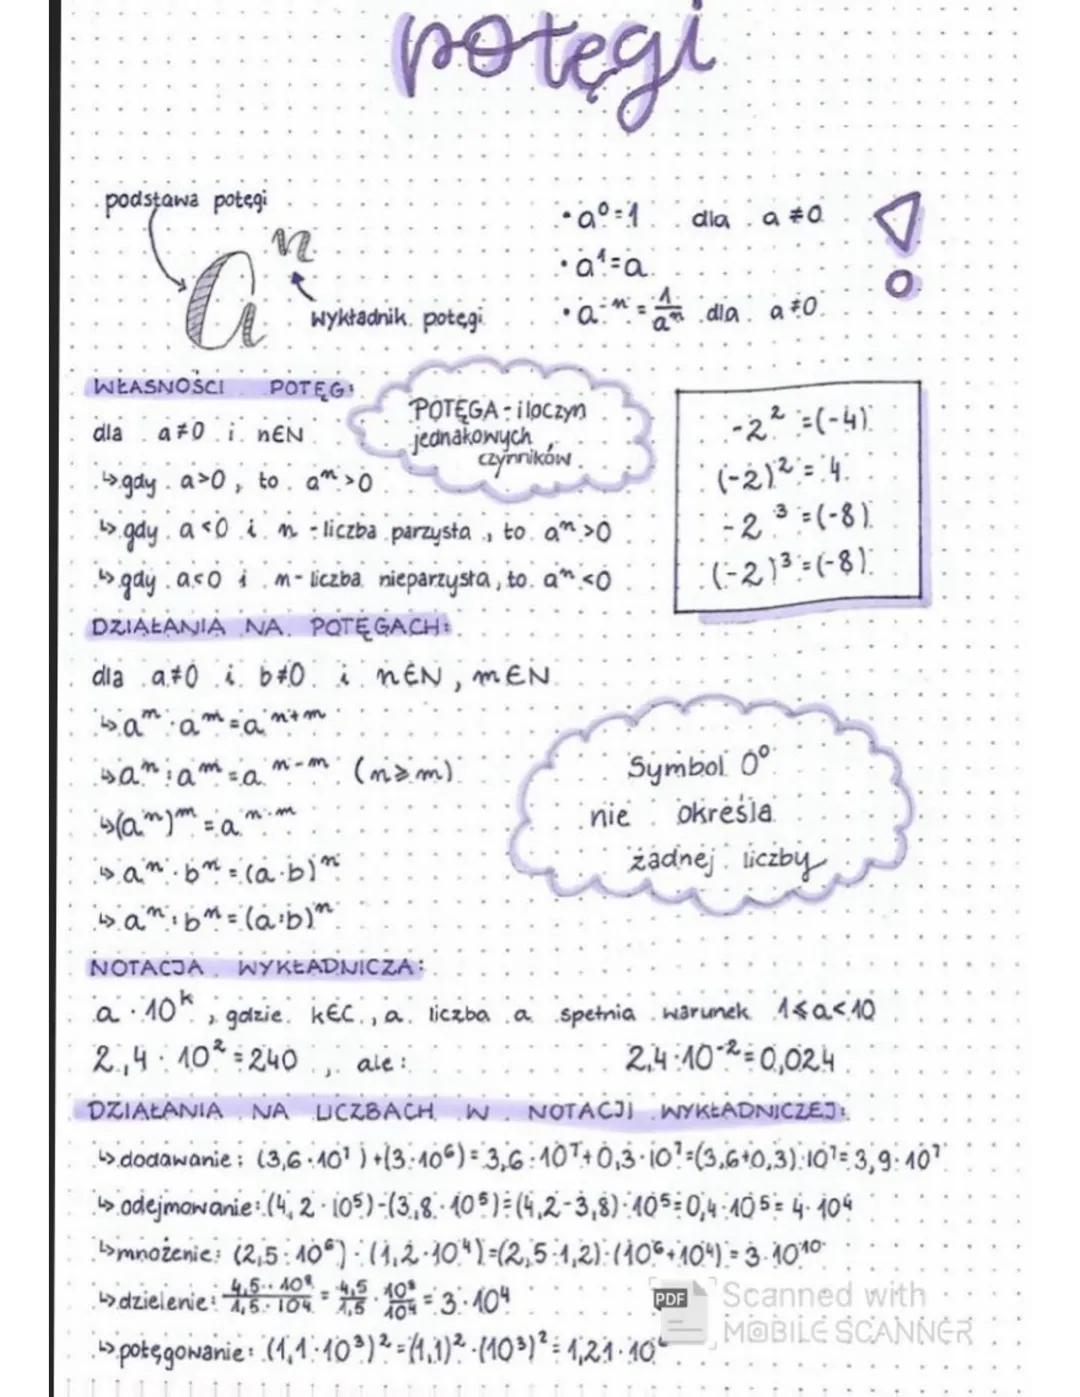 potęgi
podstawa potęgi
aⁿ
wykładnik potęgi
• a⁰=1 dla a≠0
• a¹=a
• a⁻ⁿ = 1/aⁿ dla a≠0
WŁASNOŚCI POTĘG:
dla a≠0 i n∈N
↳ gdy a>0, to aⁿ>0
↳ gdy a<0 i n - liczba parzysta, to aⁿ>0
↳ gdy a<0 i n - liczba nieparzysta, to aⁿ<0
POTĘGA - iloczyn
jednakowych
czynników
-2² =(-4)
(-2)² = 4
-2³ =(-8)
(-2)³=(-8)
DZIAŁANIA NA POTĘGACH:
dla a≠0 i b≠0 i n∈N, m∈N
↳ aⁿ · aᵐ = aⁿ⁺ᵐ
↳ aⁿ : aᵐ = aⁿ⁻ᵐ (n≥m)
↳ (aⁿ)ᵐ = aⁿ·ᵐ
↳ aⁿ · bⁿ = (a·b)ⁿ
↳ aⁿ : bⁿ = (a:b)ⁿ
Symbol 0⁰
nie określa
żadnej liczby
NOTACJA WYKŁADNICZA:
a · 10ᵏ, gdzie k∈C, a liczba a spełnia warunek 1≤a<10
2,4 · 10² = 240, ale: 2,4·10⁻²=0,024
DZIAŁANIA NA LICZBACH W NOTACJI WYKŁADNICZEJ:
↳ dodawanie: (3,6·10⁷)+(3·10⁶)=3,6·10⁷+0,3·10⁷=(3,6+0,3)·10⁷=3,9·10⁷
↳ odejmowanie: (4,2·10⁵)-(3,8·10⁵)=(4,2-3,8)·10⁵=0,4·10⁵=4·10⁴
↳ mnożenie: (2,5·10⁶)·(1,2·10⁴)=(2,5·1,2)·(10⁶+10⁴)=3·10¹⁰
↳ dzielenie: 4,5·10⁸/1,5·10⁴ = 4,5/1,5 · 10⁸/10⁴ = 3·10⁴
↳ potęgowanie: (1,1·10³)²=(1,1)²·(10³)²=1,21·10⁶
PDF Scanned with
MOBILE SCANNER